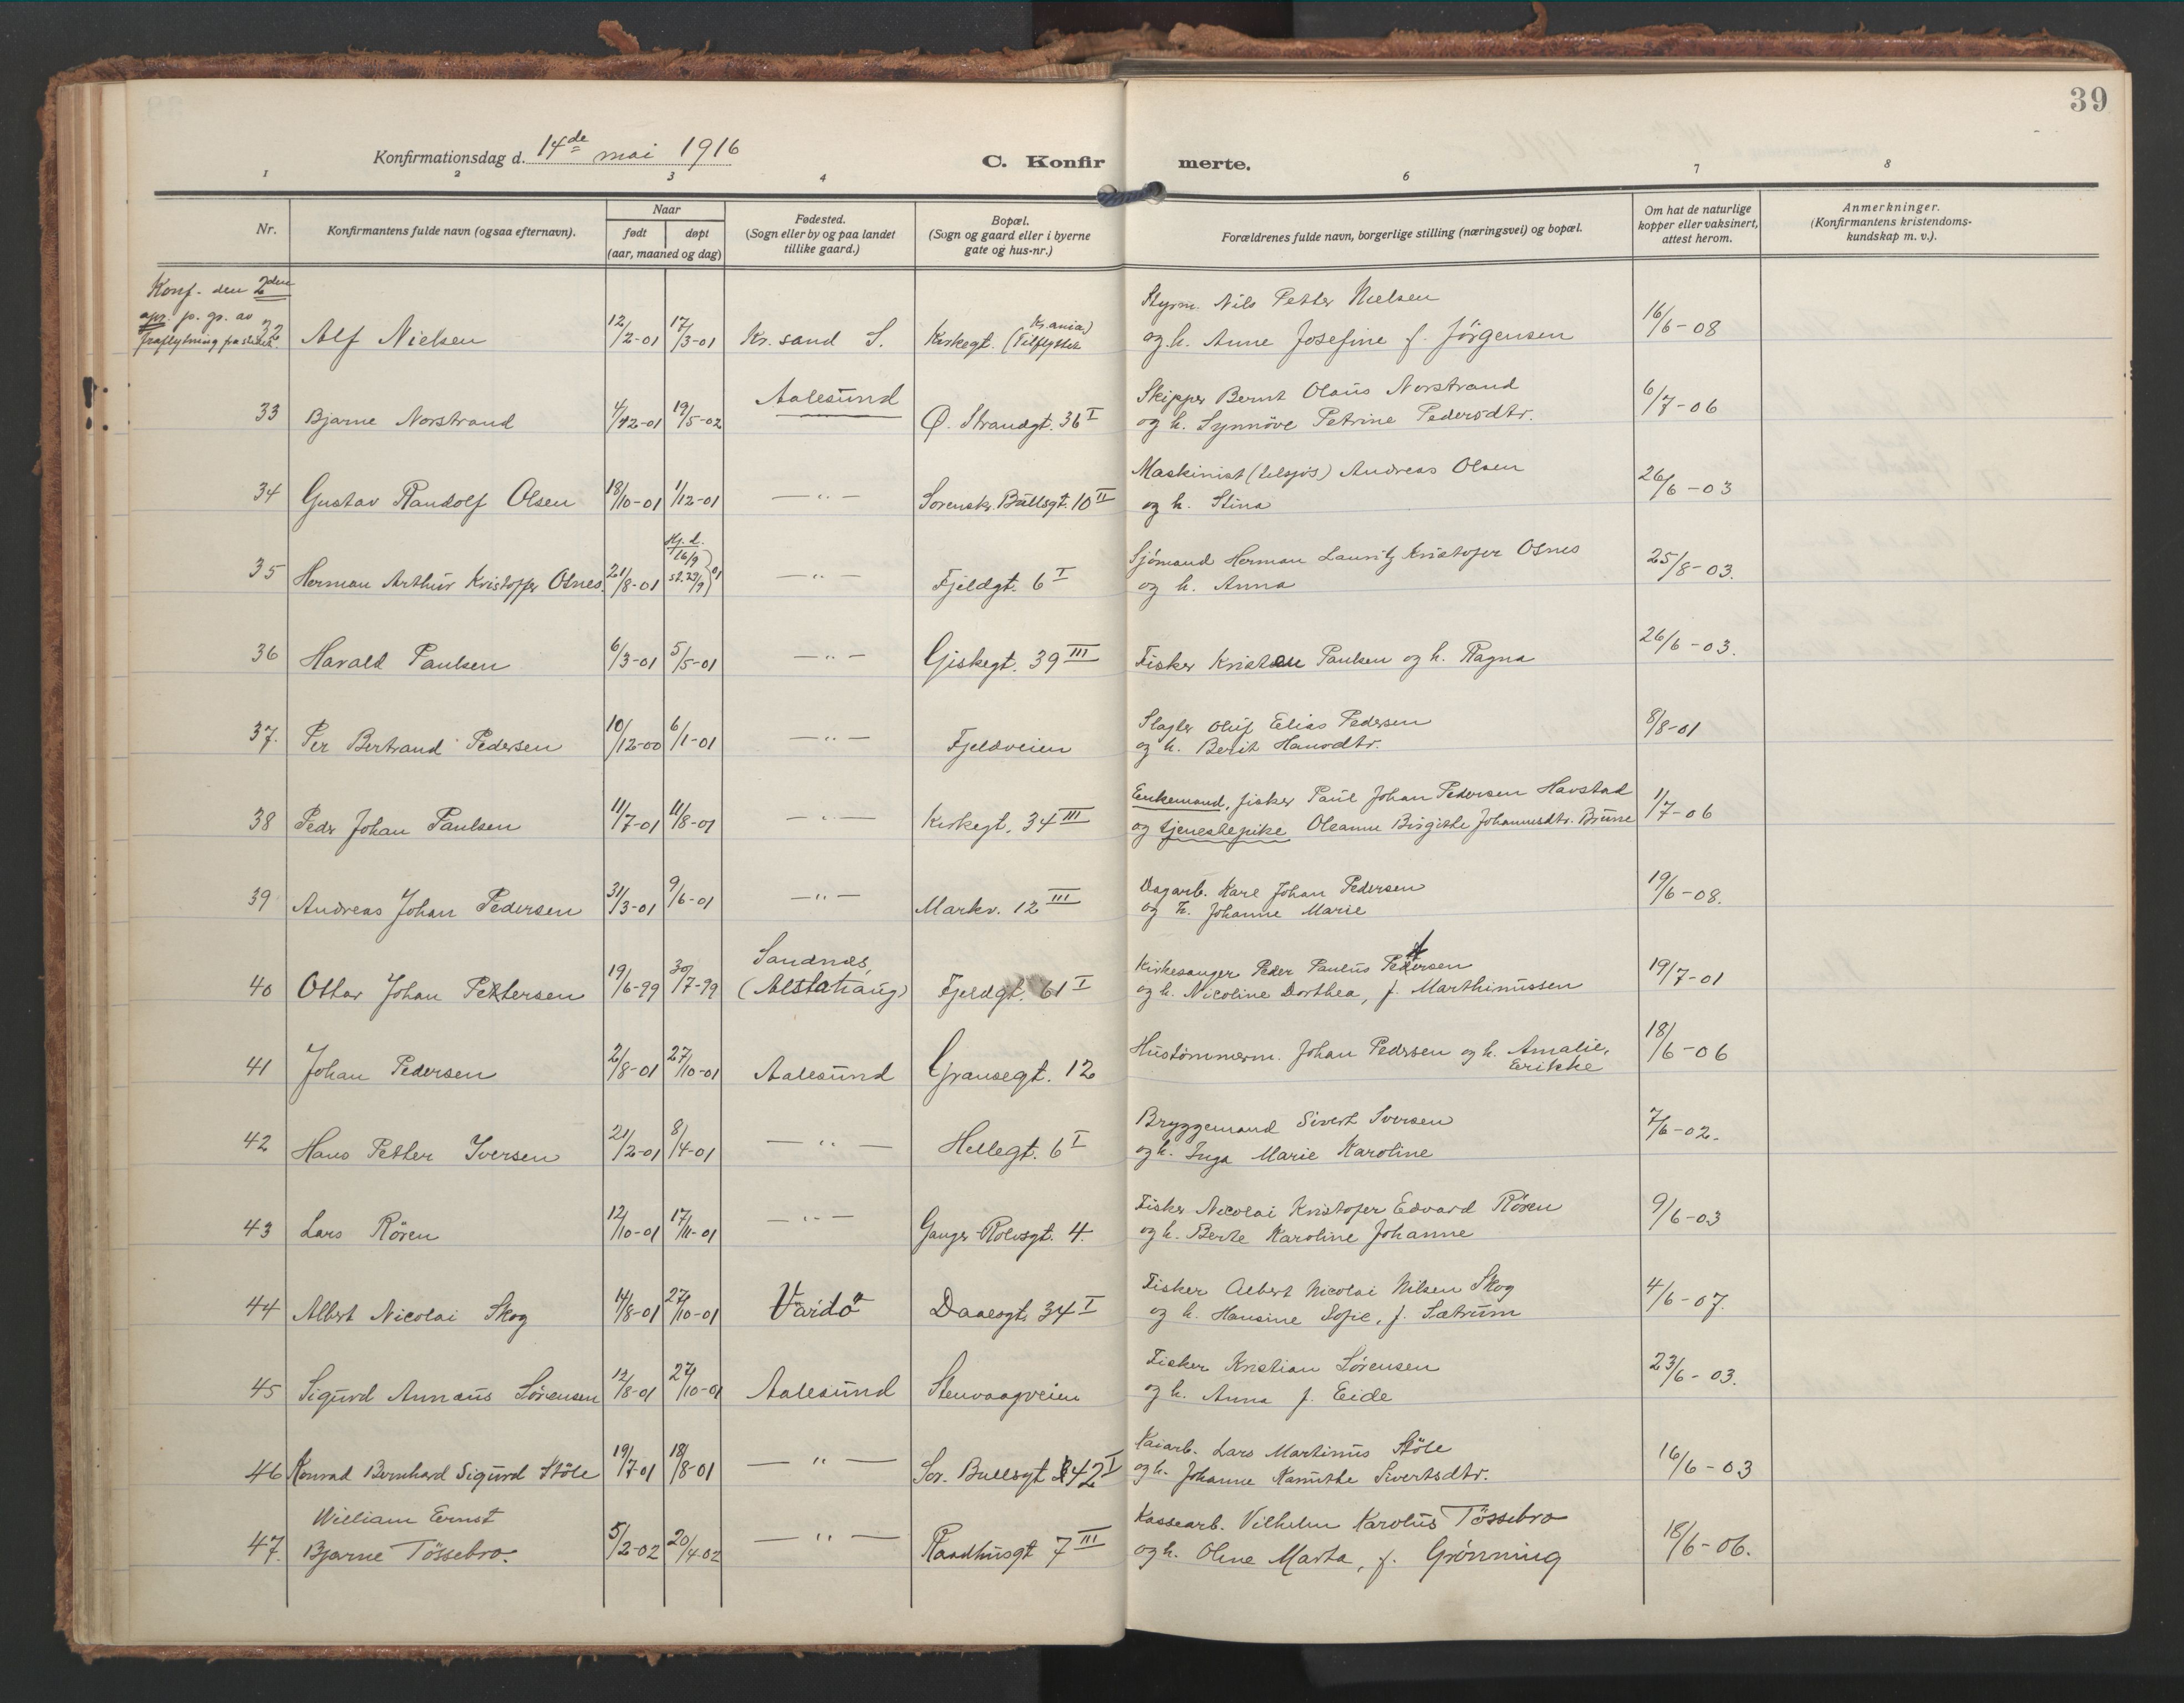 39
Konfirmationsdag d. 14de mai 1916
C. Konfirmerte.
1 2 3 4 6 7 8
Nr. Konfirmantens fulde navn (ogsaa efternavn). Naar født døpt (aar, maaned og dag) Fødested. (Sogn eller by og paa landet tillike gaard.) Bopæl. (Sogn og gaard eller i byerne gate og hus-nr.) Forældrenes fulde navn, borgerlige stilling (næringsvei) og bopæl. Om hat de naturlige kopper eller vaksinert, attest herom. Anmerkninger. (Konfirmantens kristendoms-kundskap m. v.).
Konf. den 2den
apr. p. gr. av
fraflytning fra
32 Alf Nielsen 12/2-01 17/3-01 Kr.sand S. Kirkegt. (Tilflyttet Kr.ania) Styrm. Nils Petter Nielsen
og h. Anne Josefine f. Jörgensen 16/6-08
33 Bjarne Norstrand 4/12-01 19/5-02 Aalesund Ø. Strandgt. 36 I Skipper Bernt Olaus Norstrand
og h. Synnöve Petrine Pedersdtr. 6/7-06
34 Gustav Randolf Olsen 18/10-01 1/12-01 — " — Sorensk. Bullsgt. 10 II Maskinist (tilsjøs) Andreas Olsen
og h. Stina 26/6-03
35 Herman Arthur Kristoffer Olnes 21/8-01 Hj. d. 16/9 st. 29/9 01 — " — Fjeldgt. 6 I Sjömand Herman Lauritz Kristofer Olnes
og h. Anna 25/8-03.
36 Harald Paulsen 6/3-01 5/5-01 — " — Giskegt. 39 III Fisker Kristen Paulsen og h. Ragna 26/6-03.
37. Per Bertrand Pedersen 10/12-00 6/1-01 — " — Fjeldveien Slagter Oluf Elias Pedersen
og h. Berit Hansdtr. 8/8-01
38 Peder Johan Paulsen 11/7-01 11/8-01 — " — Kirkegt. 34 III Enkemand, fisker Paul Johan Pedersen Havstad
og tjenestepike Olsanne Birgitte Johannesdtr. Brune 1/7-06
39 Andreas Johan Pedersen 31/3-01 9/6-01 — " — Markv. 12 III Dagarb. Karl Johan Pedersen
og h. Johanne Marie 19/6-08.
40 Ottar Johan Pettersen 19/6-99 30/7-99 Sandnes, (Alstahaug) Fjeldgt. 61 I Kirkesanger Peder Paulus Petersen
og h. Nicoline Dorthea, f. Marthinussen 19/7-01
41 Johan Pedersen 2/8-01 27/10-01 Aalesund Gransegt. 12 Hustömmerm. Johan Pedersen og h. Amalie,
Erikke 18/6-06
42 Hans Petter Iversen 21/2-01 8/4-01 — " — Hellegt. 6 I Bryggemand Sivert Iversen
og h. Inga Marie Karoline 7/6-02.
43 Lars Rören 12/10-01 17/11-01 — " — Ganger-Rolvsgt. 4. Fisker Nicolai Kristofer Edvard Rören
og h. Berte Karoline Johanne 9/6-03
44 Albert Nicolai Skog 14/8-01 27/10-01 Vardö Daaesgt. 34 I Fisker Albert Nicolai Nilsen Skog
og h. Hansine Sofie, f. Sætrum 4/6-07.
45 Sigurd Annanus Sörensen 12/8-01 27/10-01 Aalesund Stenvaagveien Fisker Kristian Sörensen
og h. Anna f. Eide 23/6-03.
46 Konrad Bernhard Sigurd Stöle 19/7-01 18/8-01 — " — Sor. Bullsgt 42 I Kaiarb. Lars Martinus Stöle
og h. Johanne Sivertsdtr. 16/6-03
47. William Ernst
Bjarne Tössebro. 5/2-02 20/4-02 — " — Raadhusgt 7 III Kassearb. Vilhelm Karolus Tössebro
og h. Oline Marta, f. Grönning 18/6-06.